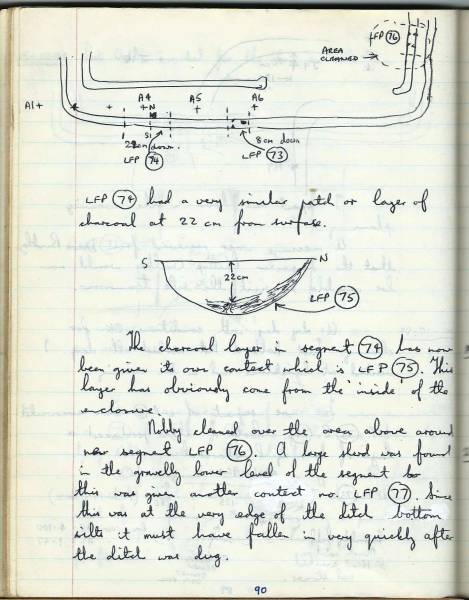 LFP 76
AREA
CLEANED
A1+
A4
A5
A6
+N
S1
22cm down.
8cm down
LFP 74
LFP 73
LFP 74 had a very similar patch or layer of
charcoal at 22 cm from surface.
S
N
22cm
LFP 75
The charcoal layer in segment 74 has now
been given its own context which is LFP 75. This
layer has obviously come from the 'inside' of the
enclosure.
Nobby cleaned over the area above around
new segment LFP 76. A large sherd was found
in the gravelly lower level of the segment so
this was given another context no. LFP 77. Since
this was at the very edge of the ditch bottom
silts it must have fallen in very quickly after
the ditch was dug.
90